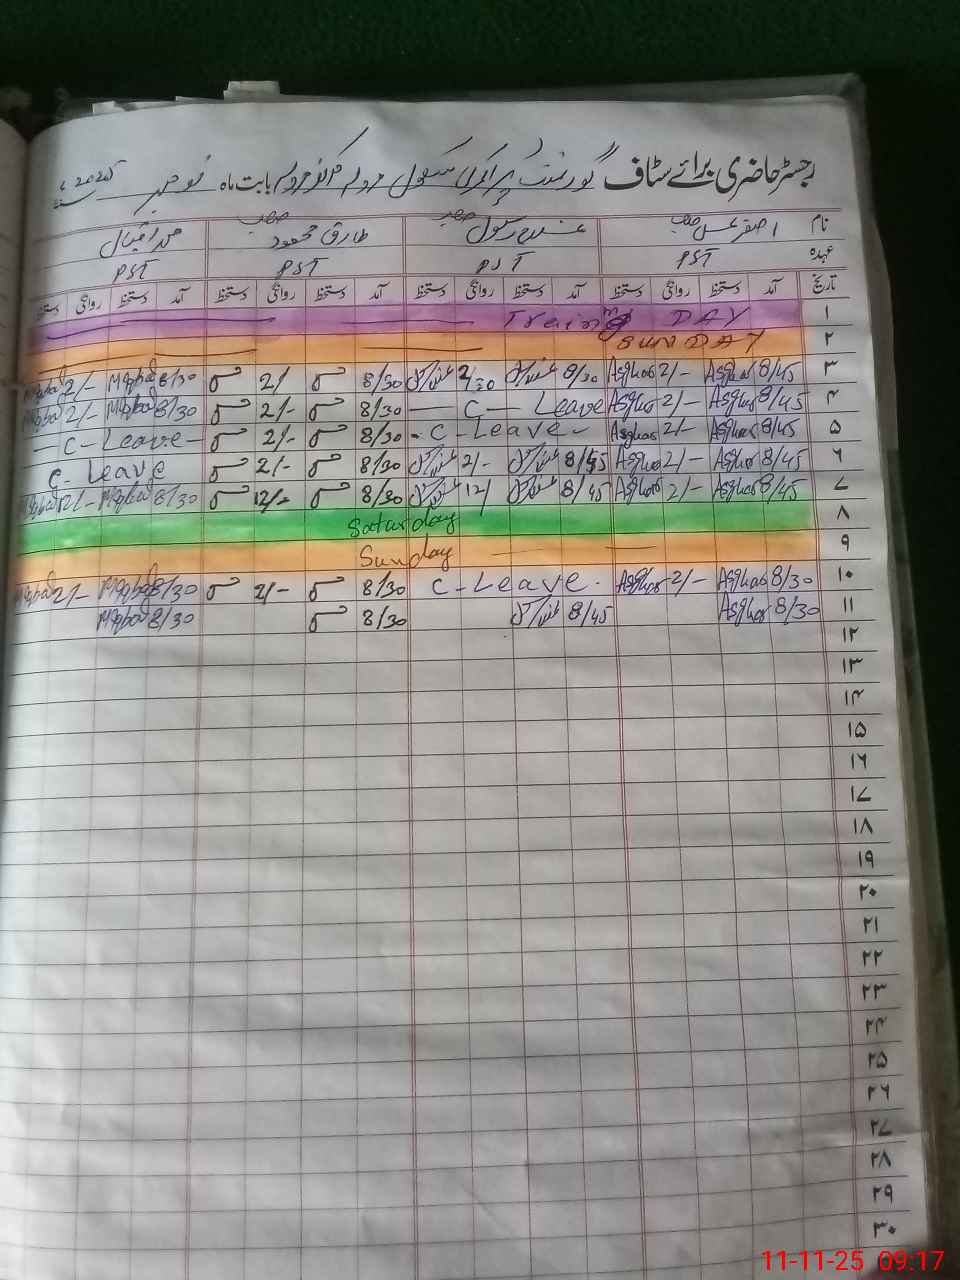 رجسٹر حاضری برائے سٹاف گورنمنٹ پرائمری سکول بابت ماہ نومبر 2025ء
نام اصغر صاحب غلام رسول صاحب طارق محمود صاحب محمد اقبال
عہدہ PST PST PST PST
تاریخ آمد دستخط روانگی دستخط آمد دستخط روانگی دستخط آمد دستخط روانگی دستخط آمد دستخط روانگی دستخط
۱ Training DAY
۲ SUNDAY
۳ 8/45 Asghar 2/- Asghar 8/30 2/30 8/30 2/- 8/30 MIqbal 2/- MIqbal
۴ 8/45 Asghar 2/- Asghar C - Leave 8/30 2/- 8/30 MIqbal 2/- MIqbal
۵ 8/45 Asghar 2/- Asghar - C - Leave - 8/30 2/- - C - Leave -
۶ 8/45 Asghar 2/- Asghar 8/45 2/- 8/30 2/- C - Leave
۷ 8/45 Asghar 2/- Asghar 8/45 12/ 8/30 12/- 8/30 MIqbal 12/- MIqbal
۸ Saturday
۹ Sunday
۱۰ 8/30 Asghar 2/- Asghar C - Leave - 8/30 2/- 8/30 MIqbal 2/- MIqbal
۱۱ 8/30 Asghar 8/45 8/30 8/30 MIqbal
۱۲
۱۳
۱۴
۱۵
۱۶
۱۷
۱۸
۱۹
۲۰
۲۱
۲۲
۲۳
۲۴
۲۵
۲۶
۲۷
۲۸
۲۹
۳۰
11-11-25 09:17